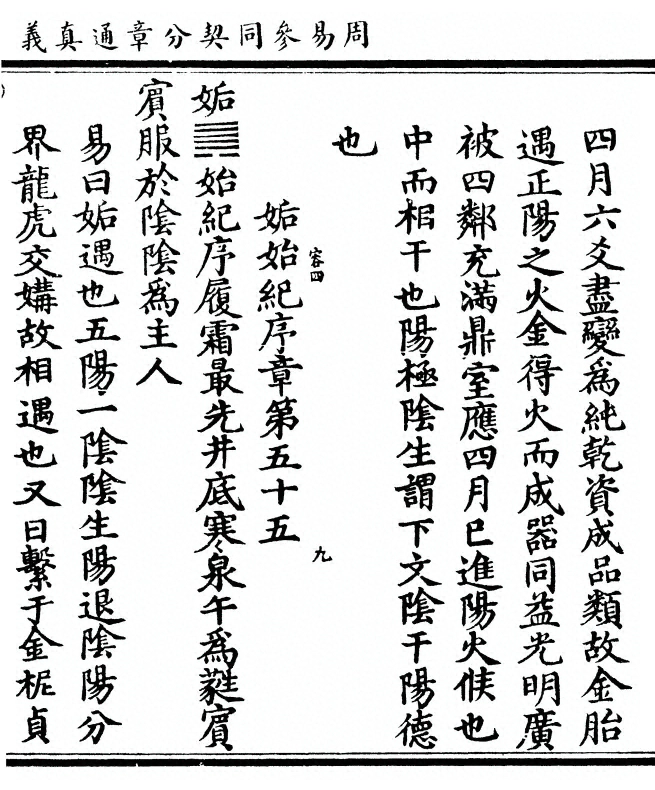 周易參同契分章通真義
四月六爻盡變爲純乾資成品類故金胎
遇正陽之火金得火而成器同益光明廣
被四鄰充滿鼎室應四月巳進陽火候也
中而相干也陽極陰生謂下文陰干陽德
也
容四
九
姤始紀序章第五十五
姤䷫始紀序履霜最先井底寒泉午爲蕤賓
賓服於陰陰爲主人
易曰姤遇也五陽一陰陰生陽退陰陽分
界龍虎交媾故相遇也又曰繫于金柅貞